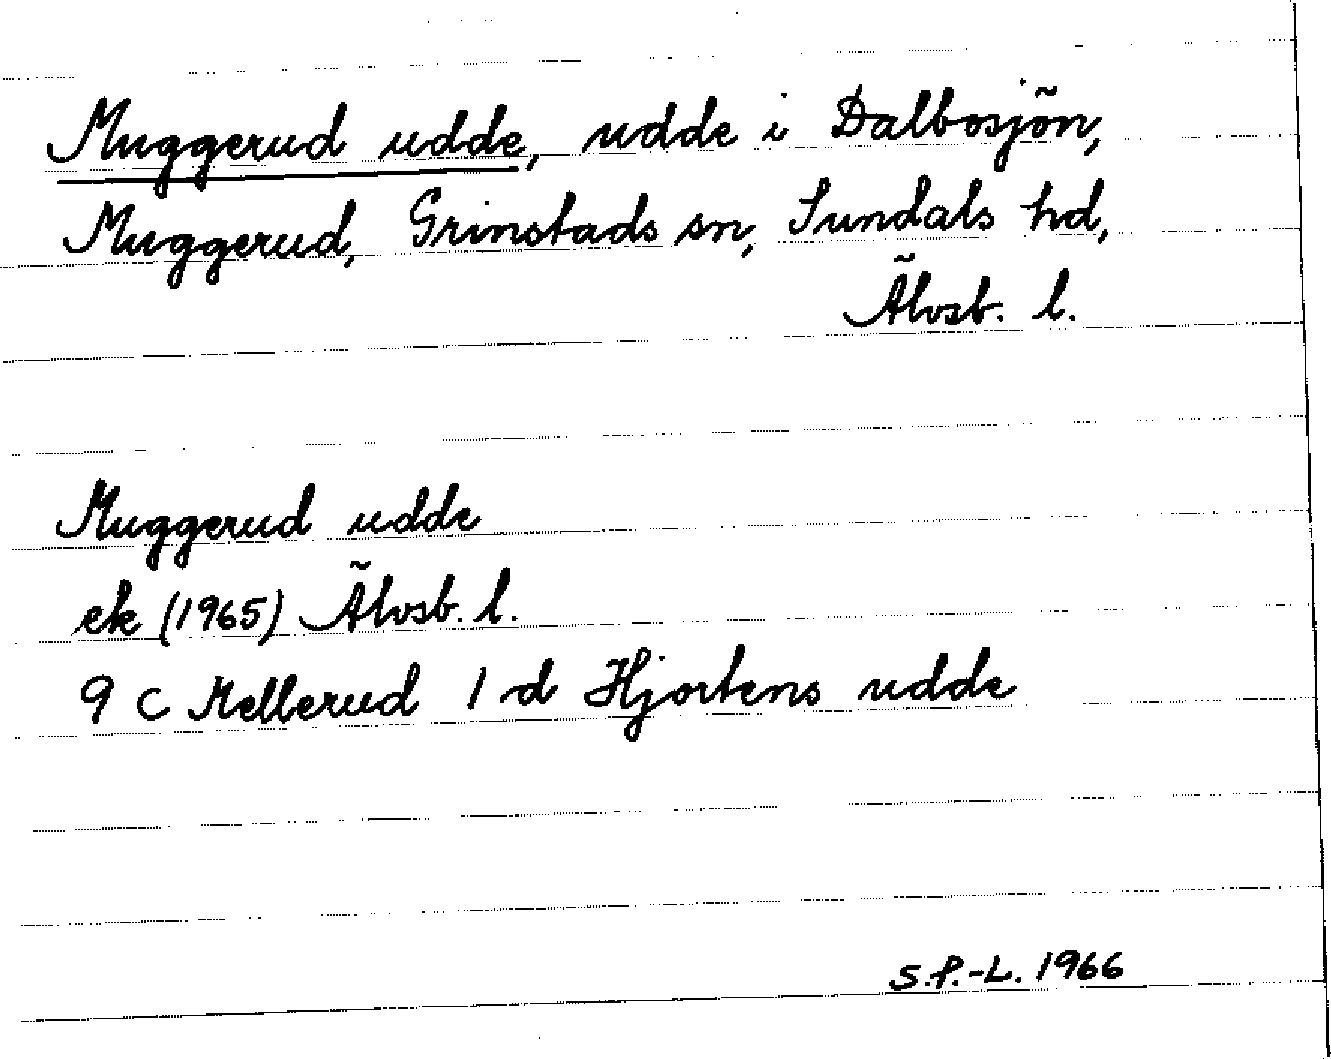 Muggerud udde, udde i Dalbosjön,
Muggerud, Grinstads sn, Sundals hd,
Älvsb. l.
Muggerud udde
ek (1965) Älvsb. l.
9 C Mellerud 1 d Hjortens udde
S.P.-L. 1966